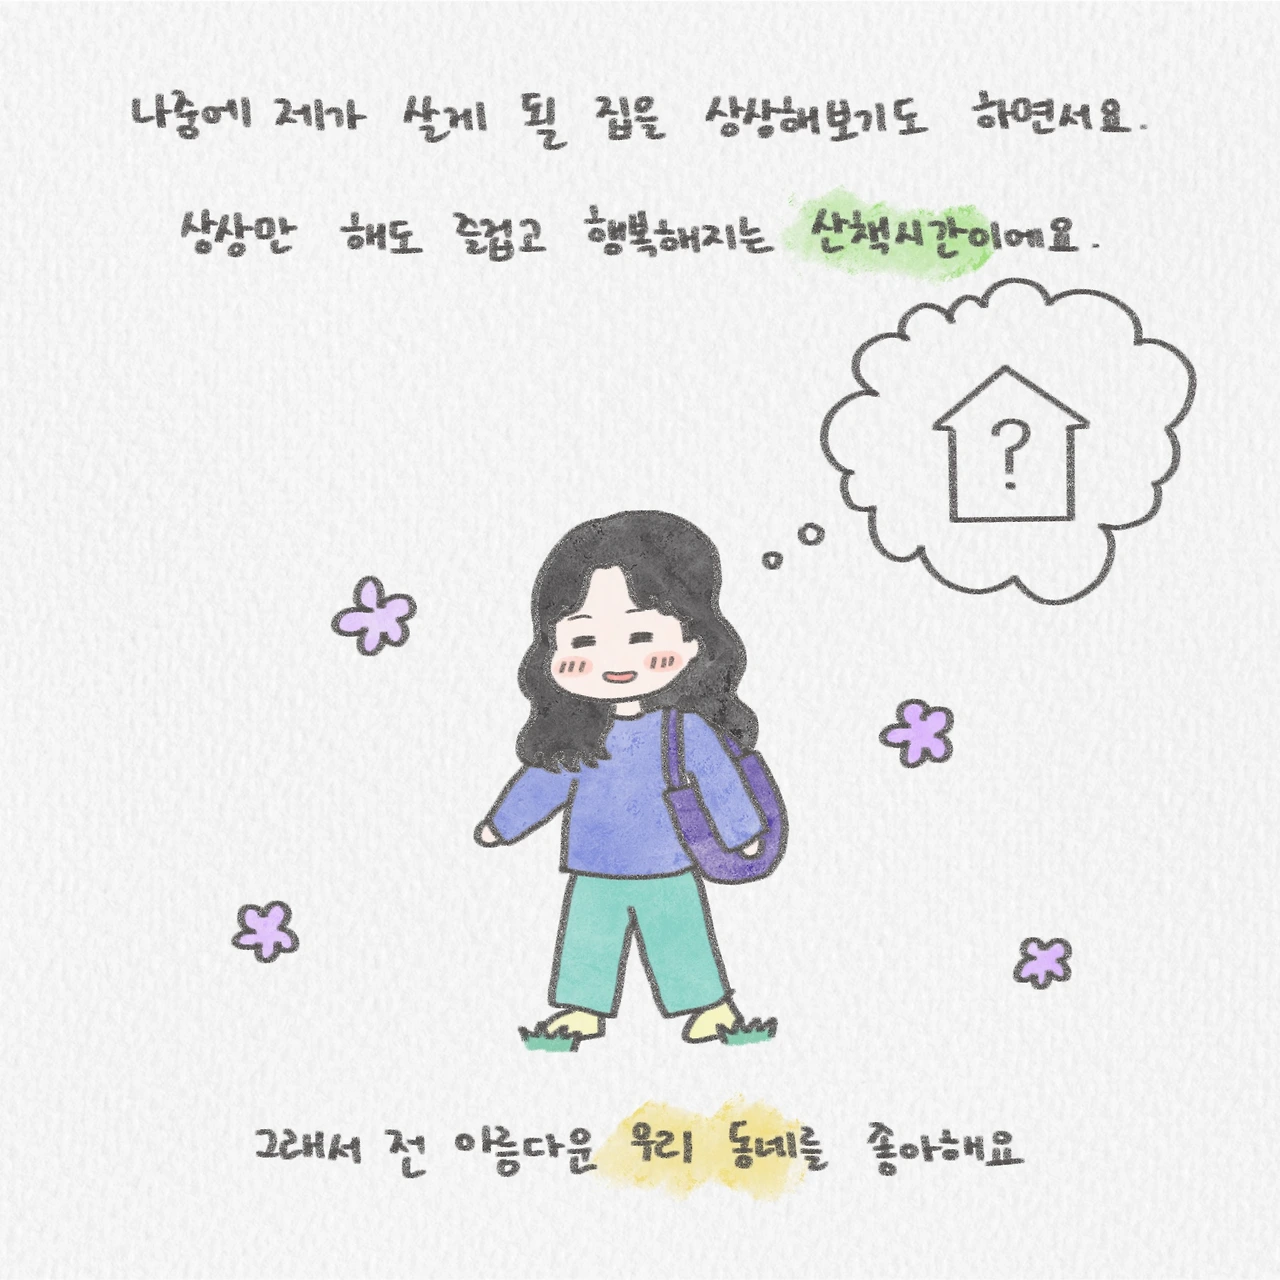 나중에 제가 살게 될 집을 상상해보기도 하면서요.
상상만 해도 즐겁고 행복해지는 산책시간이에요.
?
그래서 전 아름다운 우리 동네를 좋아해요